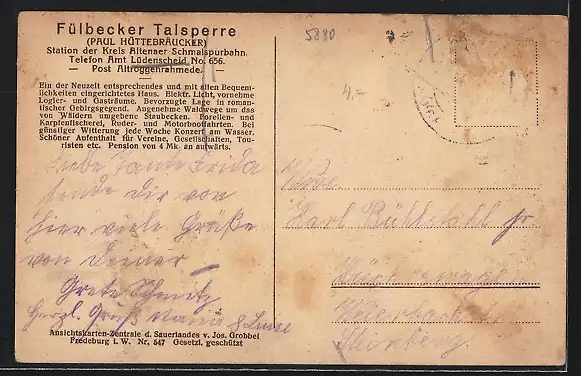 Fülbecker Talsperre
(PAUL HÜTTEBRÄUCKER)
Station der Kreis Altenaer Schmalspurbahn.
Telefon Amt Lüdenscheid No. 656.
— Post Altroggenrahmede. —
Ein der Neuzeit entsprechendes und mit allen Bequem-
lichkeiten eingerichtetes Haus. Elektr. Licht, vornehme
Logier- und Gasträume. Bevorzugte Lage in roman-
tischer Gebirgsgegend. Angenehme Waldwege um das
von Wäldern umgebene Staubecken. Forellen- und
Karpfenfischerei, Ruder- und Motorbootfahrten. Bei
günstiger Witterung jede Woche Konzert am Wasser.
Schöner Aufenthalt für Vereine, Gesellschaften, Tou-
risten etc. Pension von 4 Mk. an aufwärts.
Liebe Tante Frida
sende Dir von
hier viele Grüße
von Deiner
Grete Schmitz
herzl. Gruß
Ansichtskarten-Zentrale d. Sauerlandes v. Jos. Grobbel
Fredeburg i. W. Nr. 547 Gesetzl. geschützt
5880
4.-
Karl jr